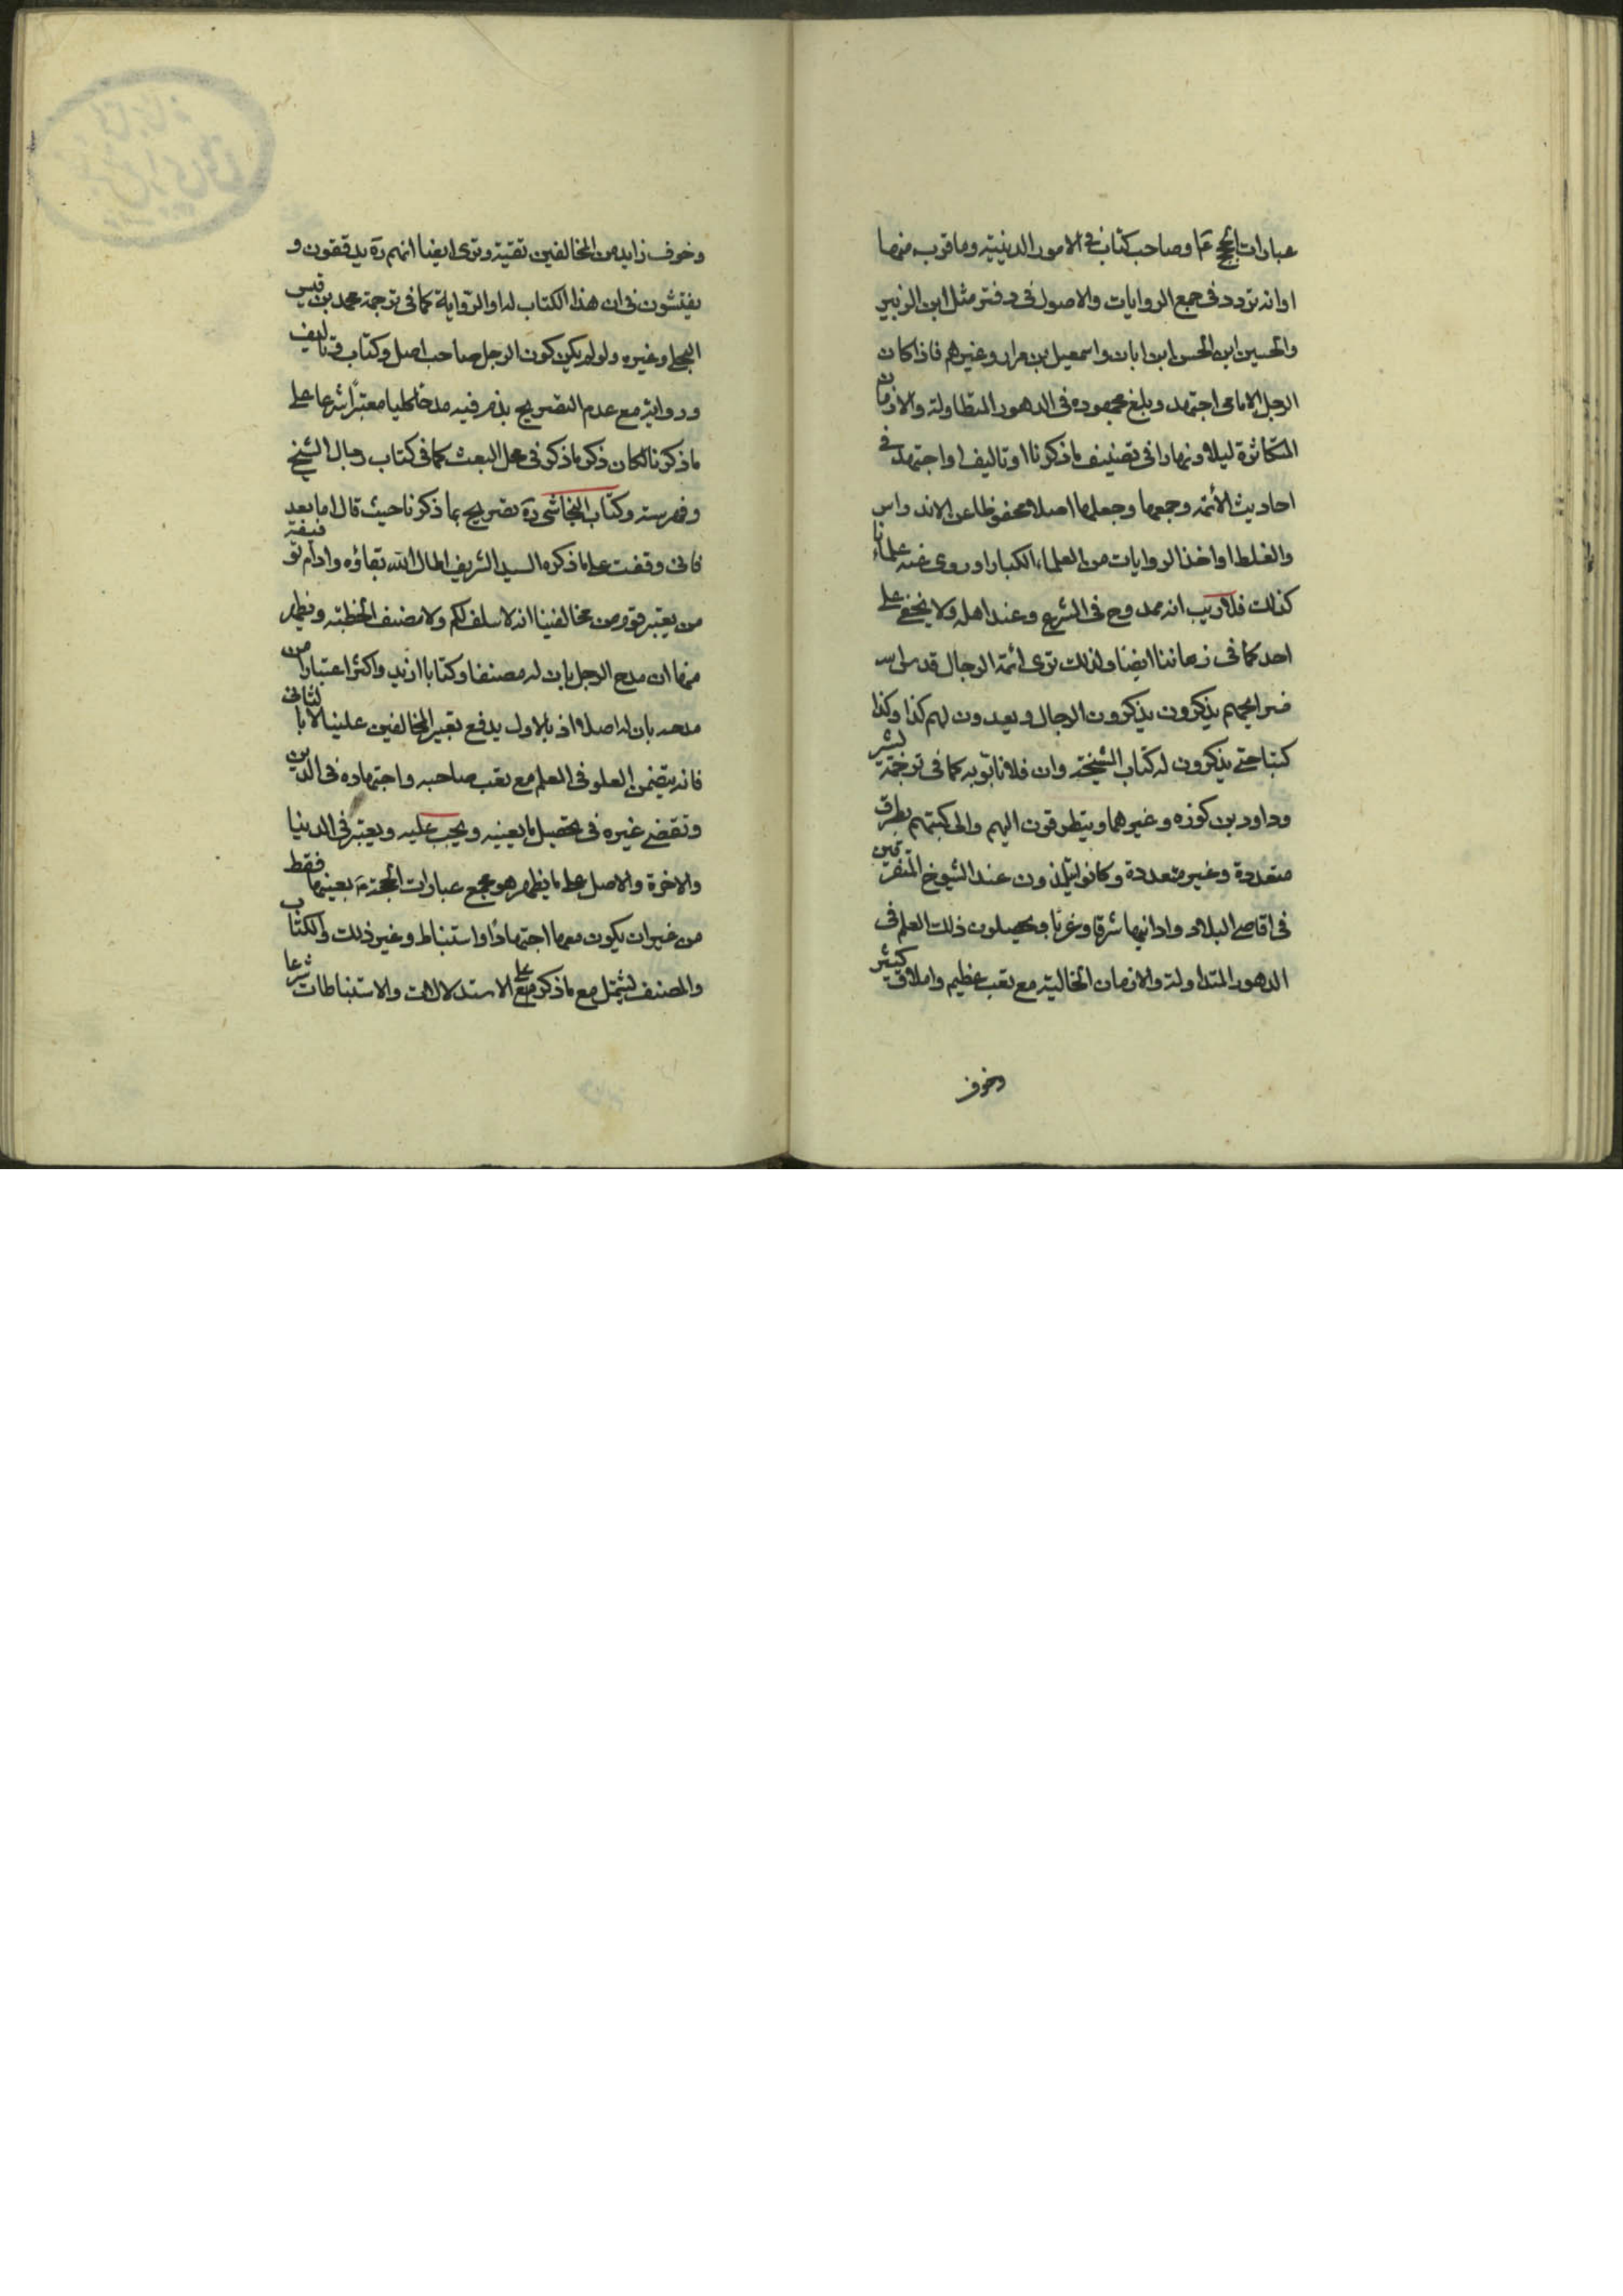 عبارات الحجج ع‍م او صاحب كتاب فى الامور الدينيّة وما قرب منها
او انه تردد فى جمع الروايات والاصول فى دفتر مثل ابن الزبير
والحسين ابن الحسن ابن ابان واسمعيل بن مرار وغيرهم فاذا كان
الرجل الامامى اجتهد وبلغ مجهوده فى الدهور المتطاولة والازمان
المتكاثرة ليلا ونهارا فى تصنيف ما ذكرنا او تاليف او اجتهد فى
احاديث الأئمه وجمعها وجعلها اصلا محفوظا عن الاندراس
والغلط او اخذ الروايات من العلماء الكبار او روى عنه علماءنا
كذلك فلا ريب انه ممدوح فى الشرع وعند اهله ولا يخفى على
احد كما فى زماننا ايضا ولذلك ترى ائمة الرجال قدس الله
ضرايحهم يذكرون يذكرون الرجال ويعدون لهم كذا وكذا
كتبا حتى يذكرون له كتاب المشيخة وان فلانا بوّبه كما فى ترجمة
وداود بن كوزه وغيرهما ويتطرقون اليهم والى كتبهم بطرق
متعددة وغير متعددة وكانوا يتلمذون عند الشيوخ المتفرقين
فى اقاصى البلاد وادانيها شرقا وغربا فيحصلون ذلك العلم فى
الدهور المتداولة والازمان الخالية مع تعب عظيم واملاق كثير
وخوف
وخوف زايد من المخالفين تقية وترى ايضا انهم ره يدققون و
يفتشون فى ان هذا الكتاب له او الرّواية كما فى ترجمة محمد بن قيس
البجلى وغيره ولو لم يكن كون الرجل صاحب اصل وكتاب وتاليف
ورواية مع عدم التصريح بذم فيه مدحا كليا معتبرا شرعا على
ما ذكرنا لكان ذكر ما ذكر فى محل البعث كما فى كتاب رجال الشيخ
وفهرسته وكتاب النجاشى ره تصريح بما ذكرنا حيث قال اما بعد
فانى وقفت على ما ذكره السيد الشريف اطال الله بقاؤه وادام توفيقه
من تعيير قوم من مخالفينا انه لا سلف لكم ولا مصنف الخطبته ويظهر
منها ان مدح الرجل بان له مصنفا وكتابا ازيد واكثر اعتبارا من
مدحه بان له اصلا اذ بالاول يدفع تعيير المخالفين علينا لا بالثانى
فانه يتضمن العلو فى العلم مع تعب صاحبه واجتهاده فى الدين
غيره فى تحصيل ما يعينيه ويجب عليه ويعتبر فى الدنيا
والاخرة والاصل على ما يظهر هو مجمع عبارات الحجة ع بعينها فقط
من غير ان يكون معها اجتهادا او استنباط وغير ذلك والكتاب
والمصنف يشتمل مع ما ذكر على الاستدلالات والاستنباطات شرعا